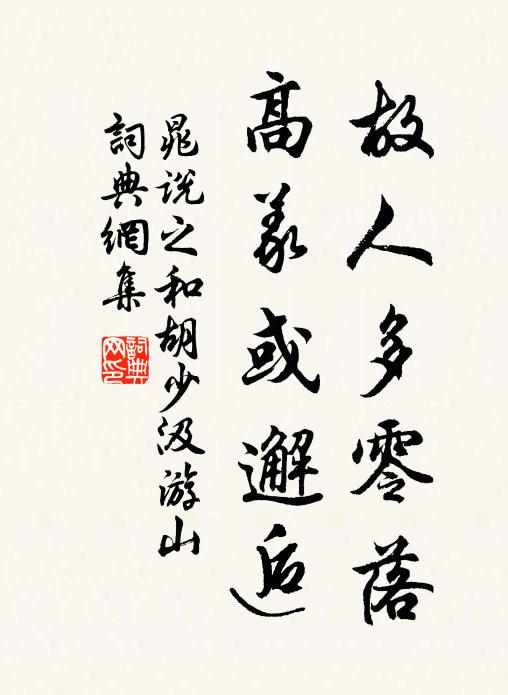 故人多零落
高義或邂逅
晁說之和胡少汲游山
詞典網集
詞典網印